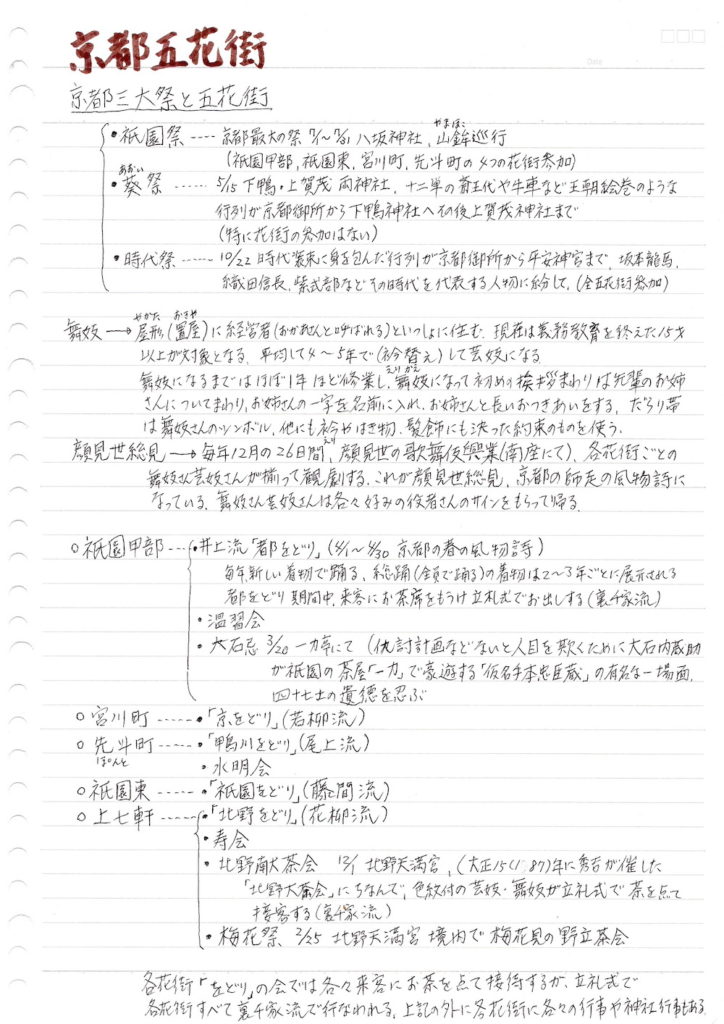 京都五花街
Date
京都三大祭と五花街
・祇園祭 ---- 京都最大の祭 7/1〜7/31 八坂神社、山鉾巡行
やまほこ
(祇園甲部、祇園東、宮川町、先斗町の4つの花街参加)
あおい
・葵祭 ------ 5/15 下鴨・上賀茂両神社、十二単の斎王代や牛車など王朝絵巻のような
行列が京都御所から下鴨神社へその後上賀茂神社まで
(特に花街の参加はない)
・時代祭 ---- 10/22 時代装束に身を包んだ行列が京都御所から平安神宮まで、坂本龍馬、
織田信長、紫式部などその時代を代表する人物に紛して、(全五花街参加)
やかた おきや
舞妓 → 屋形(置屋)に経営者(おかあさんと呼ばれる)といっしょに住む、現在は義務教育を終えた15才
以上が対象となる、平均して4〜5年で(衿替え)して芸妓になる
えりかえ
舞妓になるまではほぼ1年ほど修業し、舞妓になって初めの挨拶まわりは先輩のお姉
さんについてまわり、お姉さんの一字を名前に入れ、お姉さんと長いおつきあいをする、だらり帯
は舞妓さんのシンボル、他にも衿やはき物、髪飾にも決った約束のものを使う、
えり
顔見世総見 → 毎年12月の26日間、顔見世の歌舞伎興業(南座にて)、各花街ごとの
舞妓さん芸妓さんが揃って観劇する、これが顔見世総見、京都の師走の風物詩に
なっている、舞妓さん芸妓さんは各々好みの役者さんのサインをもらって帰る、
○祇園甲部 --- ・井上流「都をどり」(4/1〜4/30 京都の春の風物詩)
毎年新しい着物で踊る、総踊(全員で踊る)の着物は2〜3年ごとに展示される
都をどり期間中、来客にお茶席をもうけ立礼式でお出しする(裏千家流)
・温習会
・大石忌 3/20 一力亭にて (仇討計画などないと人目を欺くために大石内蔵助
が祇園の茶屋「一力」で豪遊する「仮名手本忠臣蔵」の有名な一場面、
四十七士の遺徳を忍ぶ
○宮川町 ----- ・「京をどり」(若柳流)
○先斗町 ----- ・「鴨川をどり」(尾上流)
ぽんと
・水明会
○祇園東 ----- ・「祇園をどり」(藤間流)
○上七軒 ----- ・「北野をどり」(花柳流)
・寿会
・北野献大茶会 12/1 北野天満宮、(大正15(1587)年に秀吉が催した
「北野大茶会」にちなんで、色紋付の芸妓・舞妓が立礼式で茶を点て
接客する(裏千家流)
・梅花祭 2/25 北野天満宮境内で梅花見の野立茶会
各花街「をどり」の会では各々来客にお茶を点て接待するが、立礼式で
各花街すべて裏千家流で行なわれる、上記の外に各花街に各々の行事や神社行事もある